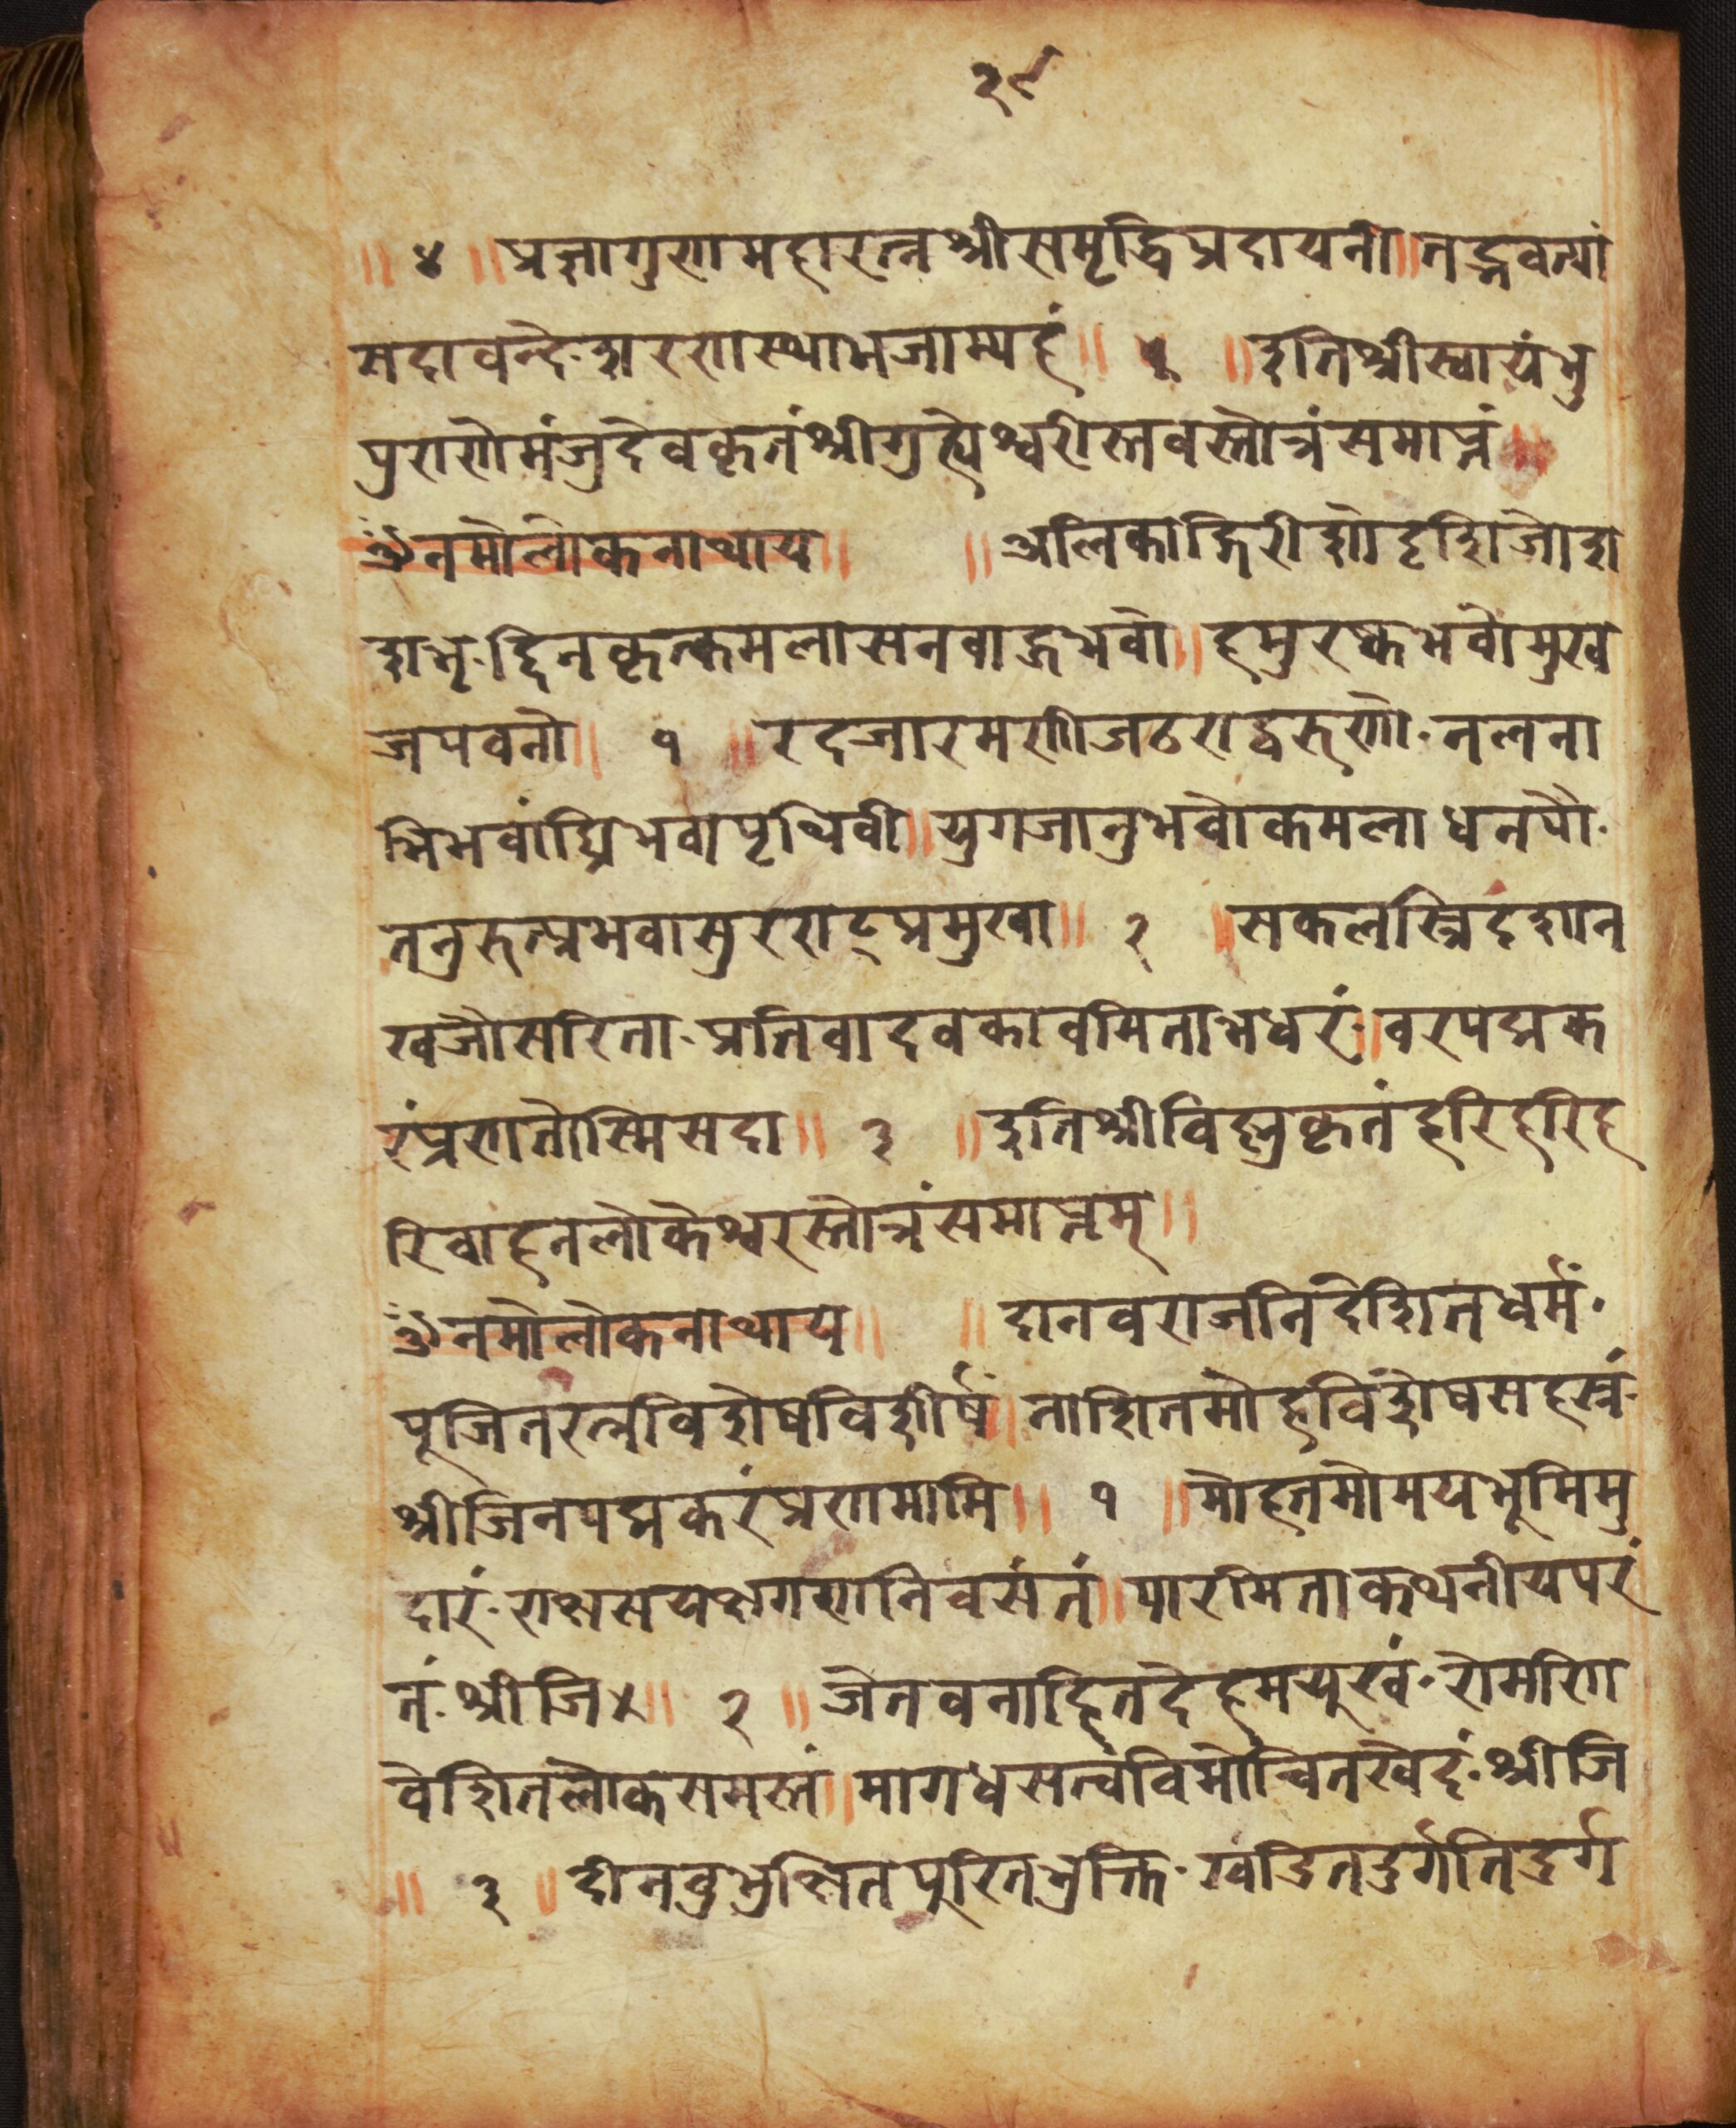 २९
॥ ४ ॥ प्रज्ञागुणमहारत्नश्रीसमृद्धिप्रदायनी ॥ तद्भवत्यां
सदावन्दे·शरणस्थाभजाम्यहं ॥ ५ ॥ इतिश्रीस्वायंभु
पुराणेमंजुदेवकृतंश्रीगुह्येश्वरीस्तवस्तोत्रंसमाप्तं ॥
ॐनमोलोकनाथाय ॥ ॥ अलिकाद्गिरीशोदृशिजोश
शभृ·द्दिनकृत्कमलासनबाहुभवो ॥ हमुरष्कभवोमुख
जपवनो ॥ १ ॥ रदजारमणीजठराद्वरुणो·नलना
भिभवांघ्रिभवापृथिवी ॥ युगजानुभवोकमलाधनपो·
तनुरुत्प्रभवासुरराट्प्रमुखा ॥ २ ॥ सकलस्त्रिदशान
खजोसरिता·प्रतिवादवकावमिताभधरं· ॥ वरपद्मक
रंप्रणतोस्मिसदा ॥ ३ ॥ इतिश्रीविष्णुकृतंहरिहरिह
रिवाहनलोकेश्वरस्तोत्रंसमाप्तम् ॥
ॐनमोलोकनाथाय ॥ ॥ दानवराजनिदेशितधर्मं·
पूजितरत्नविशेषविशीर्षं ॥ नाशितमोहविशेषसहस्रं·
श्रीजिनपद्मकरंप्रणमामि ॥ १ ॥ मोहतमोमयभूमिमु
दारं·राक्षसयक्षगणनिवसंतं ॥ पारमिताकथनीयपरं
तं·श्रीजि४ ॥ २ ॥ जेतवनाद्दितदेहमयुखं·रोमणि
वेशितलोकसमस्तं ॥ मागधसत्वविमोचितखेदं·श्रीजि
॥ ३ ॥ दीनबुभुक्षितपुरितभुक्ति·खंडितदुर्गतिदुर्ग